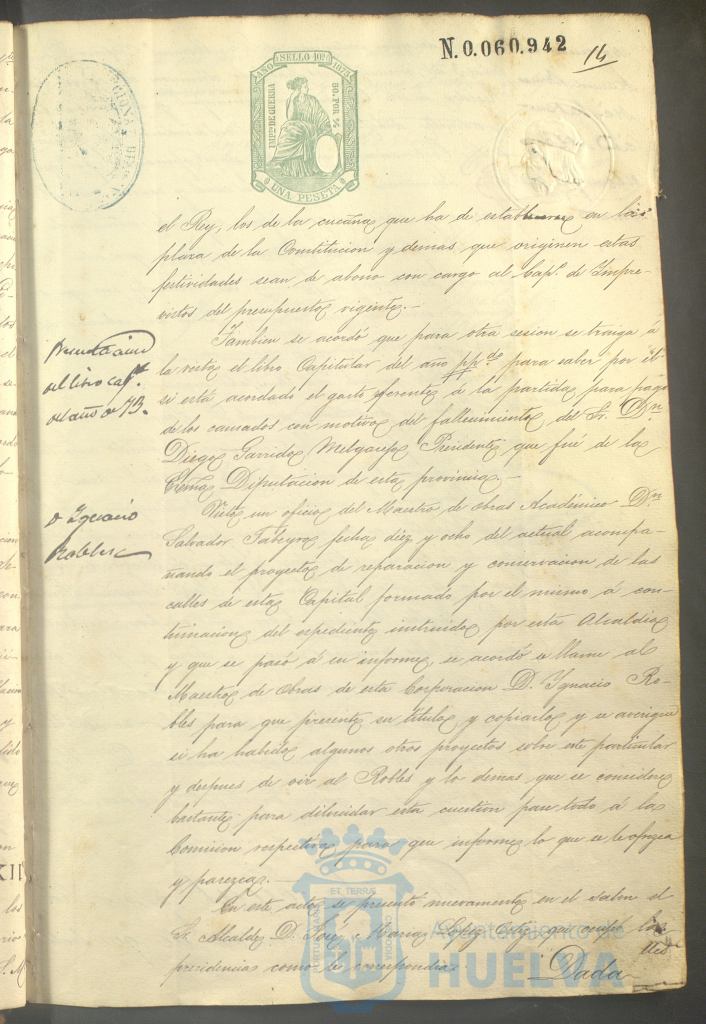 N.0.060.942
14
AÑO SELLO 10º 1875
IMPTO DE GUERRA
50. POR %
UNA PESETA
el Rey, los de la cucaña que ha de establecerse en la
plaza de la Constitucion y demas que originen estas
festividades sean de abono con cargo al Capº. de Impre-
vistos del presupuesto vigente.-
Tambien se acordó que para otra sesion se traiga á
la vista el libro Capitular del año pp.do para saber por él
si está acordado el gasto referente á la partida para pago
de los causados con motivo del fallecimiento del Sr. Dn.
Diego Garrido Melgarejo Presidente que fué de la
Exma Diputacion de esta provincia.-
Visto un oficio del Maestro de obras Académico Dn.
Salvador fecha diez y ocho del actual acompa-
ñando el proyecto de reparacion y conservacion de las
calles de esta Capital formado por el mismo á con-
tinuacion del espediente instruido por esta Alcaldia
y que se pasó á su informe, se acordó se llame al
Maestro de Obras de esta Corporacion D. Ygnacio Ro-
bles para que presente su titulo y copiarlo y se averigue
si ha habido algunos otros proyectos sobre este particular
y despues de oir al Robles y lo demas que se considere
bastante para dilucidar esta cuestion pase todo á la
Comision respectiva para que informe lo que se le ofrezca
y parezca.-
En este acto se presentó nuevamente en el salon el
Sr. Alcalde D. José Maria Lopez que ocupó la
presidencia como le correspondia.
Dada
del libro capr.
del año de 73.
D Ygnacio
Robles
ET TERRÆ
PORTUS MARIS
CUSTODIA
Ayuntamiento de
HUELVA